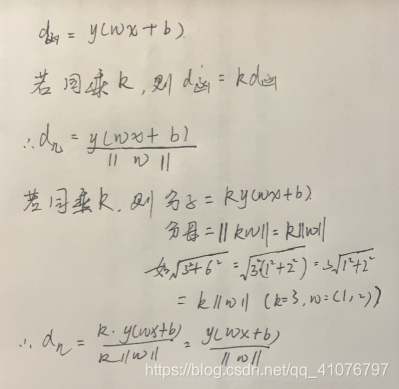 d函 = y(wx+b)
若同乘k,则 d函 = kd函
∴ d几 = y(wx+b) / ||w||
若同乘k,则 分子 = ky(wx+b)
分母 = ||kw|| = k||w||
如√3²+6² = √3²(1²+2²) = 3√1²+2²
= k||w|| (k=3, w=(1,2))
∴ d几 = k·y(wx+b) / k||w|| = y(wx+b) / ||w||
https://blog.csdn.net/qq_41076797